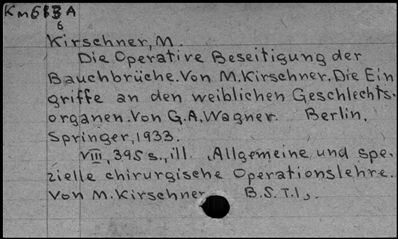 Km613A
6
Kirschner, M.
Die Operative Beseitigung der
Bauchbrüche. Von M. Kirschner. Die Ein
griffe an den weiblichen Geschlechts-
organen. Von G. A. Wagner. Berlin.
Springer, 1933.
VIII, 395 s., ill. Allgemeine und spe-
zielle chirurgische Operationslehre.
Von M. Kirschner B.S.T.I,.